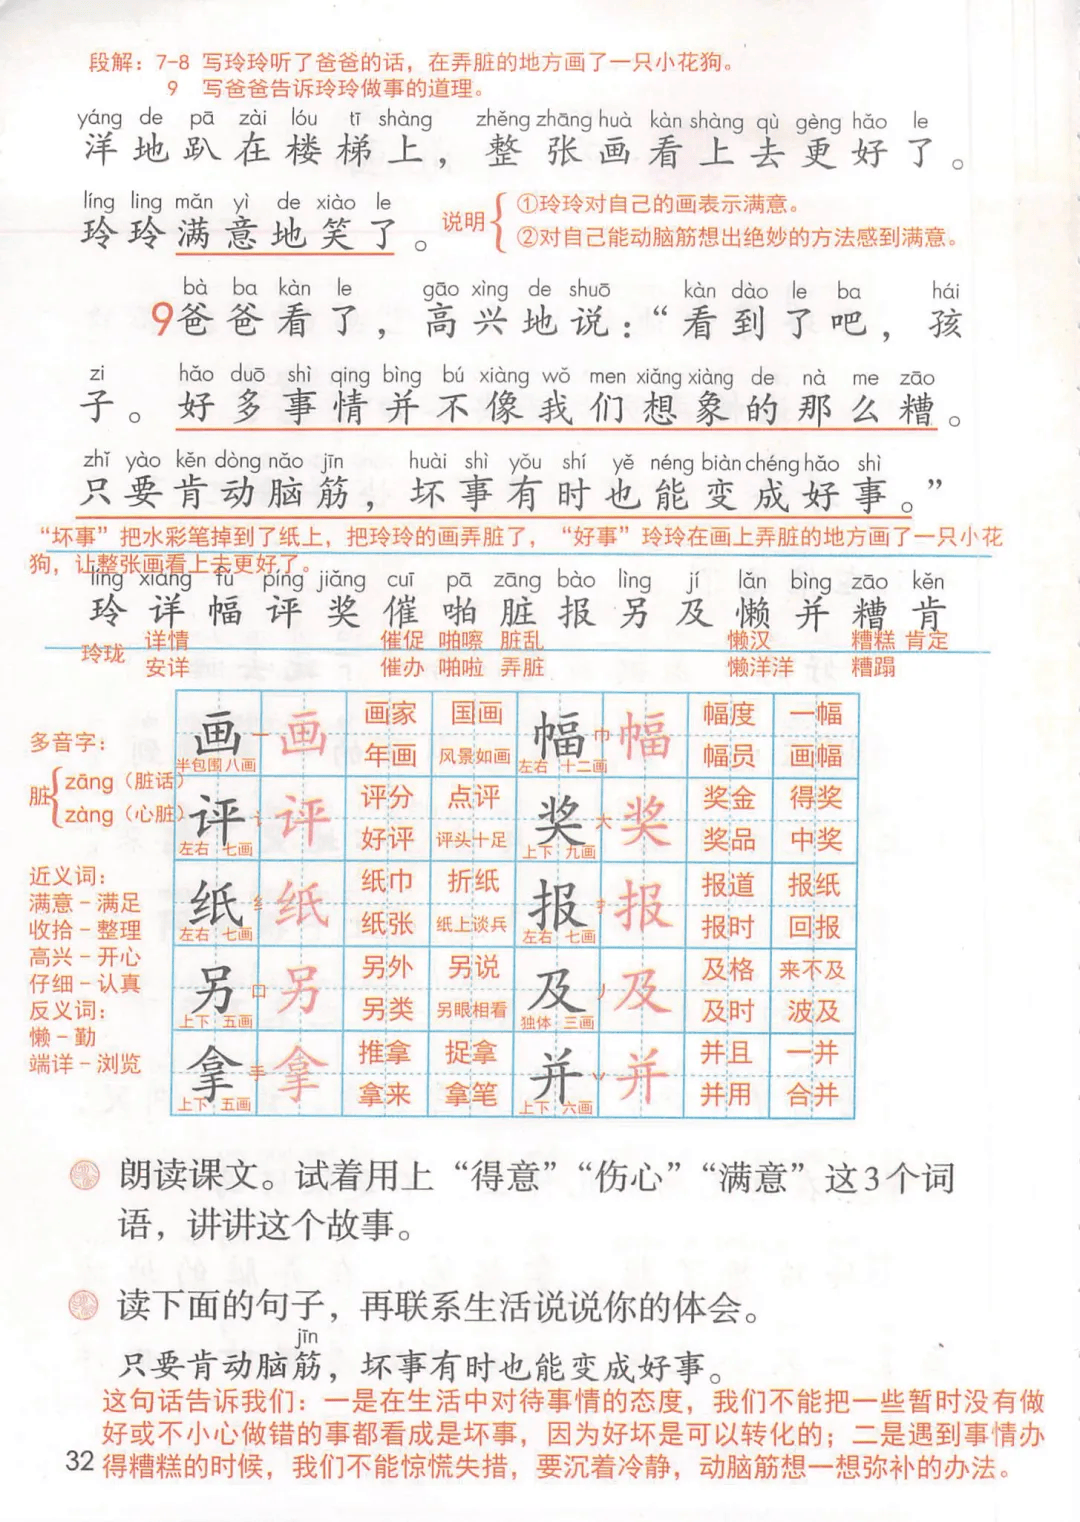 段解：7-8 写玲玲听了爸爸的话，在弄脏的地方画了一只小花狗。
9 写爸爸告诉玲玲做事的道理。
yáng de pā zài lóu tī shàng zhěng zhāng huà kàn shàng qù gèng hǎo le
洋地趴在楼梯上，整张画看上去更好了。
líng ling mǎn yì de xiào le
玲玲满意地笑了。
说明
①玲玲对自己的画表示满意。
②对自己能动脑筋想出绝妙的方法感到满意。
bà ba kàn le gāo xìng de shuō kàn dào le ba hái
9爸爸看了，高兴地说：“看到了吧，孩
zi hǎo duō shì qing bìng bú xiàng wǒ men xiǎng xiàng de nà me zāo
子。好多事情并不像我们想象的那么糟。
zhǐ yào kěn dòng nǎo jīn huài shì yǒu shí yě néng biàn chéng hǎo shì
只要肯动脑筋，坏事有时也能变成好事。”
“坏事”把水彩笔掉到了纸上，把玲玲的画弄脏了，“好事”玲玲在画上弄脏的地方画了一只小花
狗，让整张画看上去更好了。
líng xiáng fú píng jiǎng cuī pā zāng bào lìng jí lǎn bìng zāo kěn
玲详幅评奖催啪脏报另及懒并糟肯
玲珑 详情 催促 啪嚓 脏乱 懒汉 糟糕 肯定
安详 催办 啪啦 弄脏 懒洋洋 糟蹋
多音字：
脏
zāng（脏话）
zàng（心脏）
近义词：
满意－满足
收拾－整理
高兴－开心
仔细－认真
反义词：
懒－勤
端详－浏览
画 一 画 画家 国画 幅 巾 幅 幅度 一幅
半包围 八画 年画 风景如画 左右 十二画 幅员 画幅
评 讠 评 评分 点评 奖 大 奖 奖金 得奖
左右 七画 好评 评头十足 上下 九画 奖品 中奖
纸 纟 纸 纸巾 折纸 报 扌 报 报道 报纸
左右 七画 纸张 纸上谈兵 左右 七画 报时 回报
另 口 另 另外 另说 及 丿 及 及格 来不及
上下 五画 另类 另眼相看 独体 三画 及时 波及
拿 手 拿 推拿 捉拿 并 丷 并 并且 一并
上下 五画 拿来 拿笔 上下 六画 并用 合并
朗读课文。试着用上“得意”“伤心”“满意”这3个词
语，讲讲这个故事。
读下面的句子，再联系生活说说你的体会。
jīn
只要肯动脑筋，坏事有时也能变成好事。
这句话告诉我们：一是在生活中对待事情的态度，我们不能把一些暂时没有做
好或不小心做错的事都看成是坏事，因为好坏是可以转化的；二是遇到事情办
得糟糕的时候，我们不能惊慌失措，要沉着冷静，动脑筋想一想弥补的办法。
32